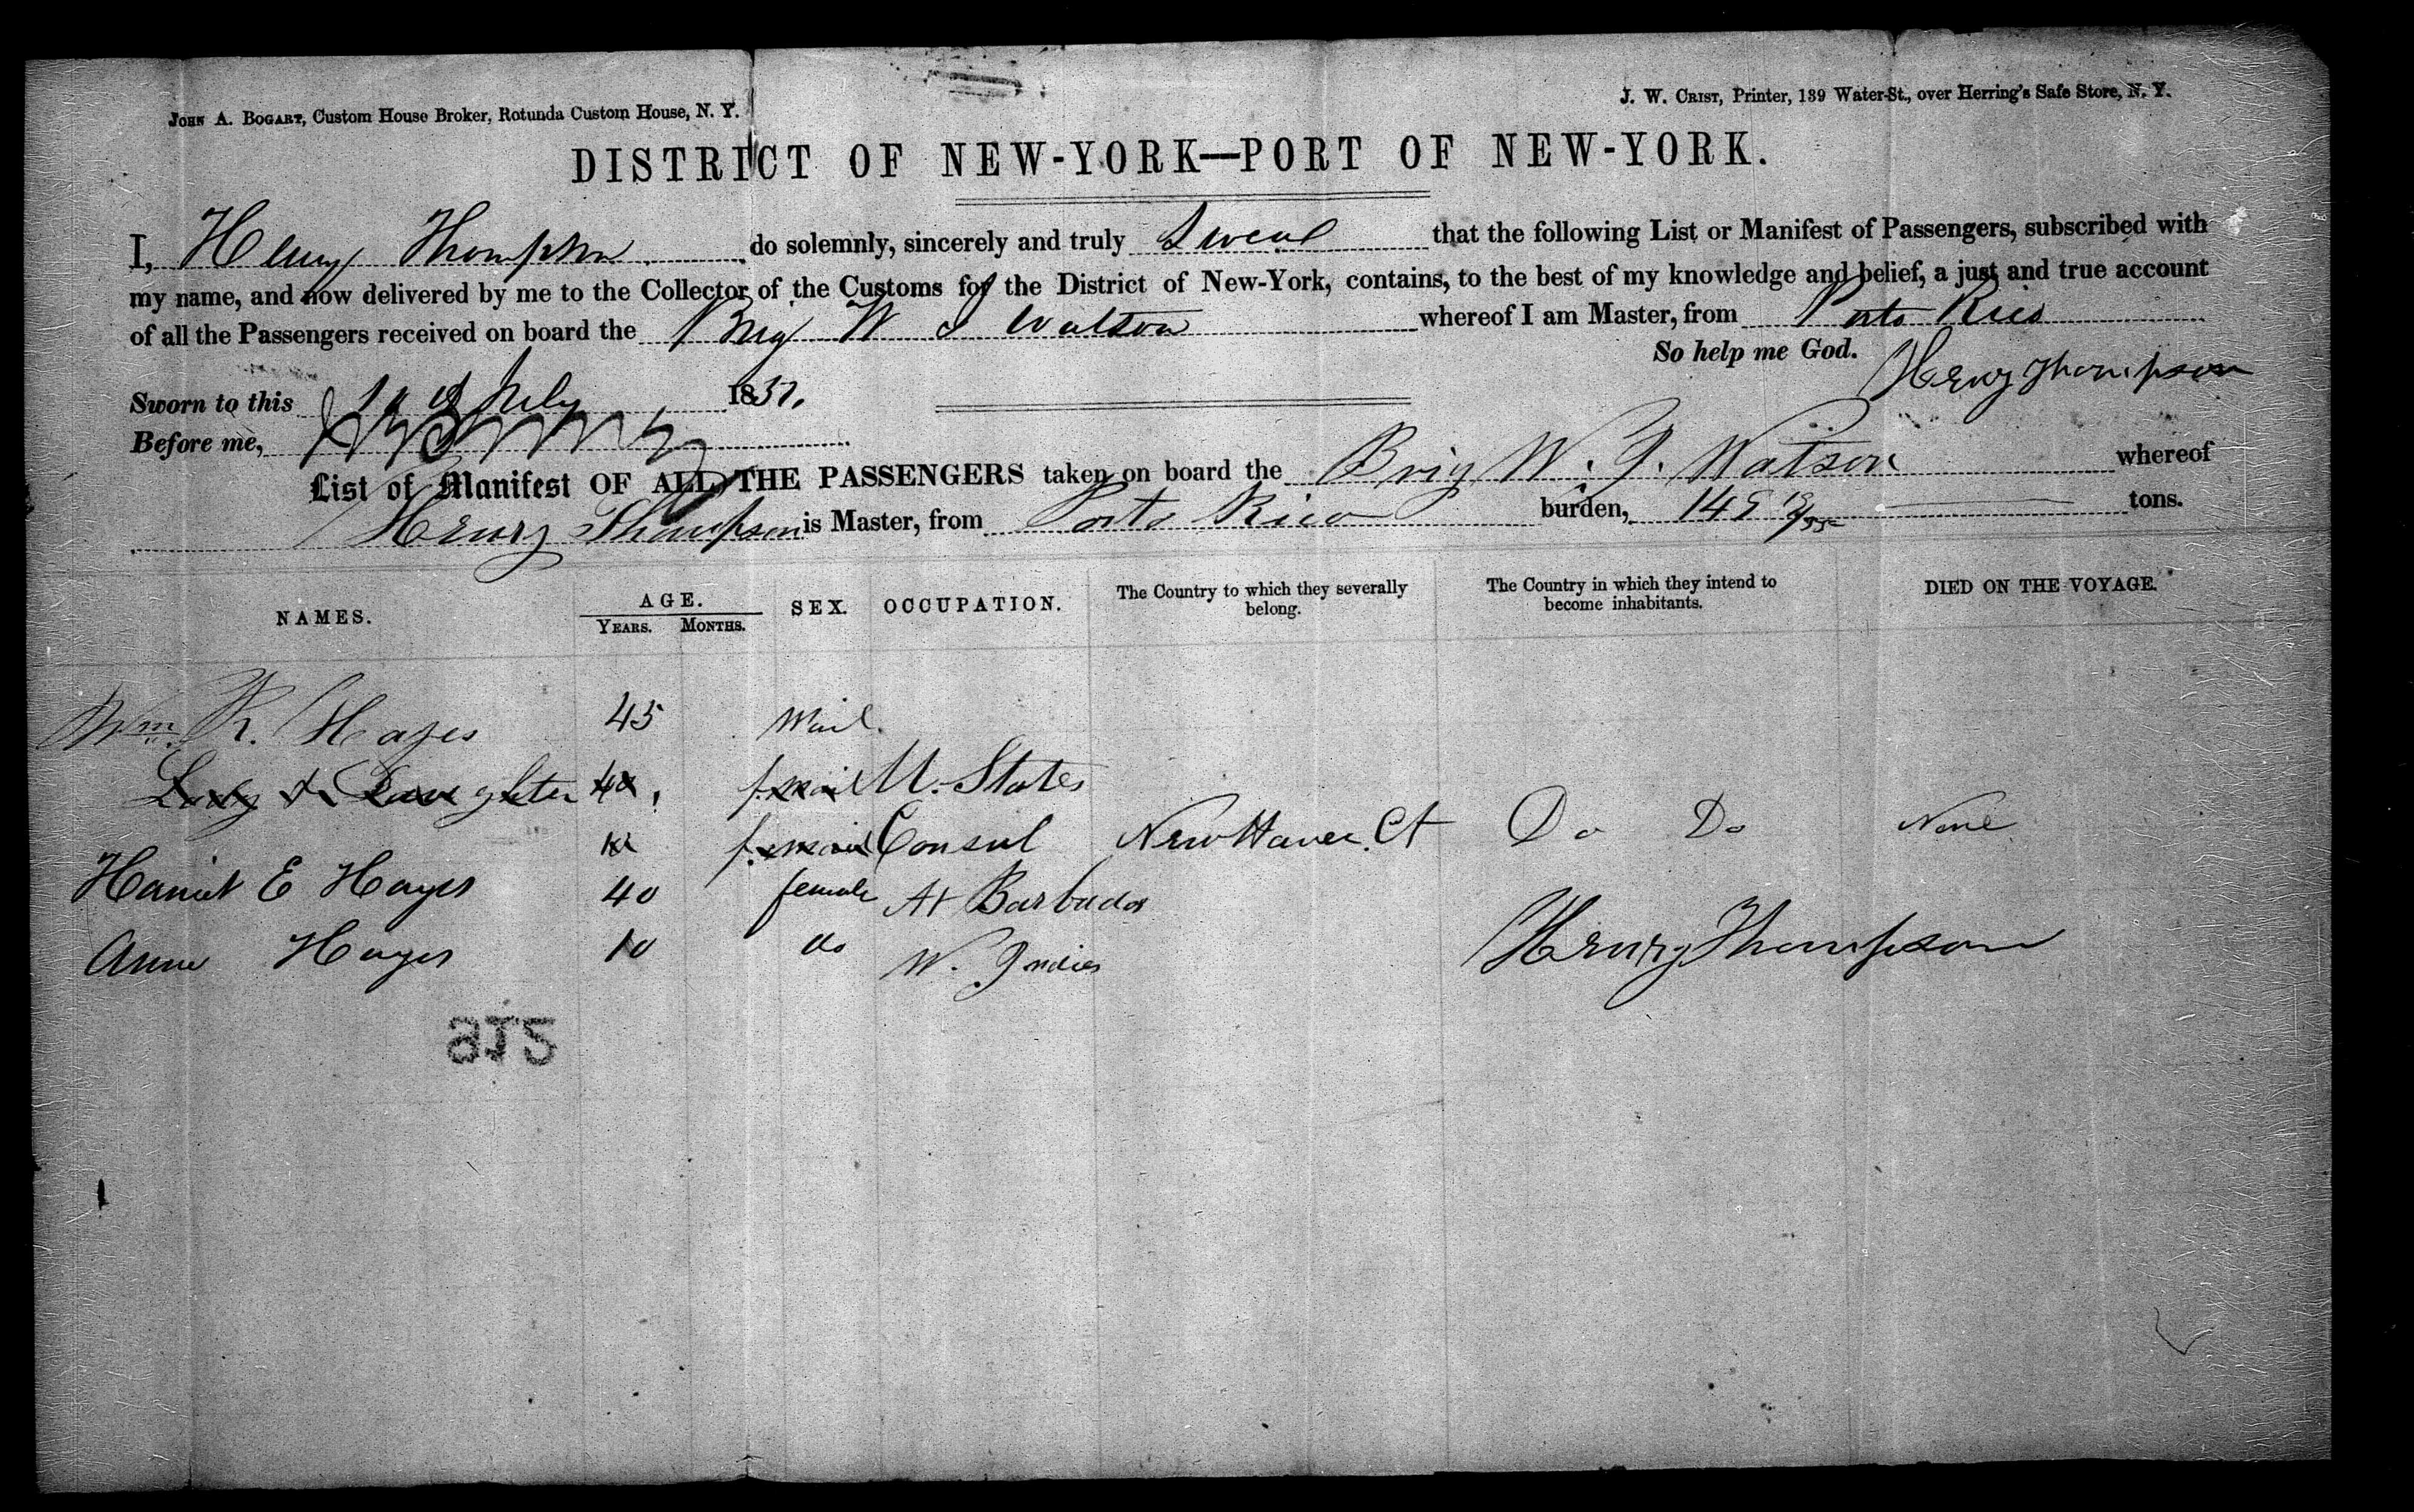 JOHN A. BOGART, Custom House Broker, Rotunda Custom House, N. Y.
J. W. CRIST, Printer, 139 Water-St., over Herring's Safe Store, N. Y.
DISTRICT OF NEW-YORK—PORT OF NEW-YORK.
I, Henry Thompson do solemnly, sincerely and truly Swear that the following List or Manifest of Passengers, subscribed with
my name, and now delivered by me to the Collector of the Customs for the District of New-York, contains, to the best of my knowledge and belief, a just and true account
of all the Passengers received on board the Brig W I Watson whereof I am Master, from Porto Rico
So help me God. Henry Thompson
Sworn to this July 1851.
Before me,
List of Manifest OF ALL THE PASSENGERS taken on board the Brig W. I. Watson whereof
Henry Thompson is Master, from Porto Rico burden, 145 tons.
NAMES. AGE. YEARS. MONTHS. SEX. OCCUPATION. The Country to which they severally belong. The Country in which they intend to become inhabitants. DIED ON THE VOYAGE.
Wm. R. Hayes 45 Mail.
Lady & Daughter 40, femail U. States
femail Consul New Haven. Ct Do Do None
Harriet E Hayes 40 female At Barbados
Anne Hayes 10 do W. Indies
Henry Thompson
215